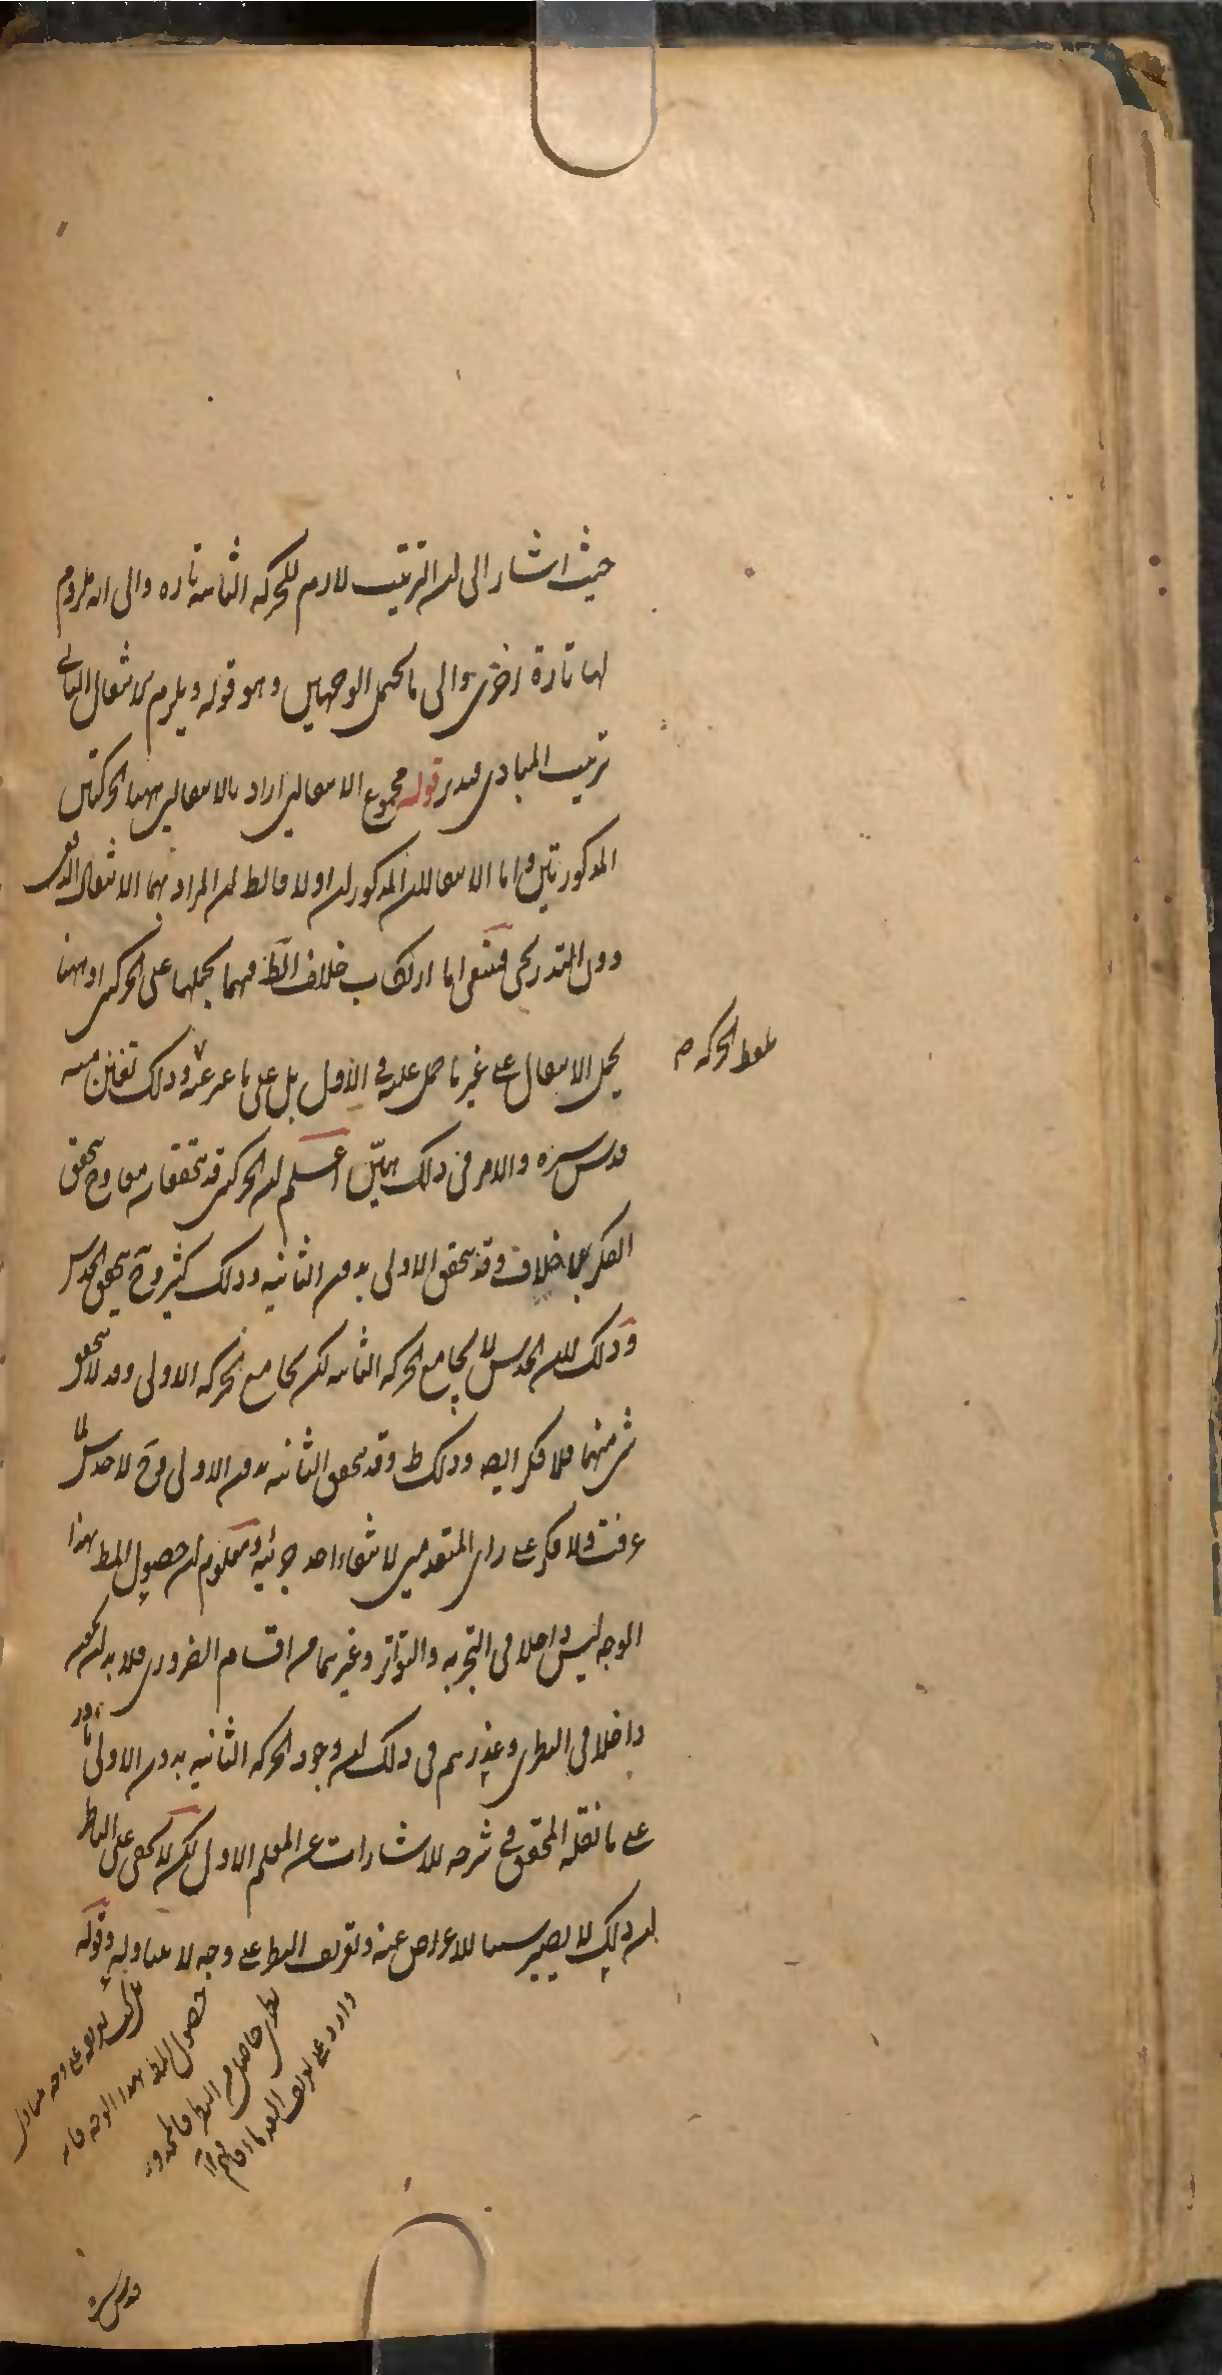 حيث اشار الى ان الترتيب لازم للحركة الثانية تارة والى انه ملزوم
لها تارة اخرى والى ما يحتمل الوجهين وهو قوله ويلزم الانتقال الثانى
ترتيب المبادى فتدبر قوله مجموع الانتقالين اراد بالانتقالين ههنا الحركتين
المذكورتين واما الانتقالان المذكوران اولا فالظ ان المراد بهما الانتقال الدفعى
دون التدريجى فتعين اما ارتكاب خلاف الظ فيهما بحملهما على الحركتين او ههنا
بحمل الانتقال على غير ما حمل عليه فى الاول بل على ما عبر عنه وذلك تفنن منه
بلفظ الحركة م
قدس سره والامر فى ذلك هين اعلم ان الحركتين قد تتحققان معا وح يتحقق
الفكر بلا خلاف وقد يتحقق الاولى بدون الثانية وذلك كثير وح يتحقق الحدس
وذلك لان الحدس لا يجامع الحركة الثانية لكن يجامع الحركة الاولى وقد لا يتحقق
شئ منهما فلا فكر ايضا وذلك ظ وقد يتحقق الثانية بدون الاولى وح لا حدس لما
عرفت ولا فكر على راى المتقدمين لانتفاء احد جزئيه ومعلوم ان حصول المط بهذا
الوجه ليس داخلا فى التجربة والتواتر وغيرهما من اقسام الضرورى فلا بد ان يكون
داخلا فى النظرى وعذرهم فى ذلك ان وجود الحركة الثانية بدون الاولى نادر
على ما نقله المحقق فى شرحه للاشارات عن المعلم الاول لكن لا يخفى على الناظر
ان ذلك لا يصير سببا للاعراض عنه وتعريف النظر على وجه لا يتناوله وقوله
تعريفه على وجه يتناول
حصول المط بهذا الوجه فانه
نظرى حاصل من النظر فالمحذور
وارد على تعريف القدماء فافهم
قدس سره